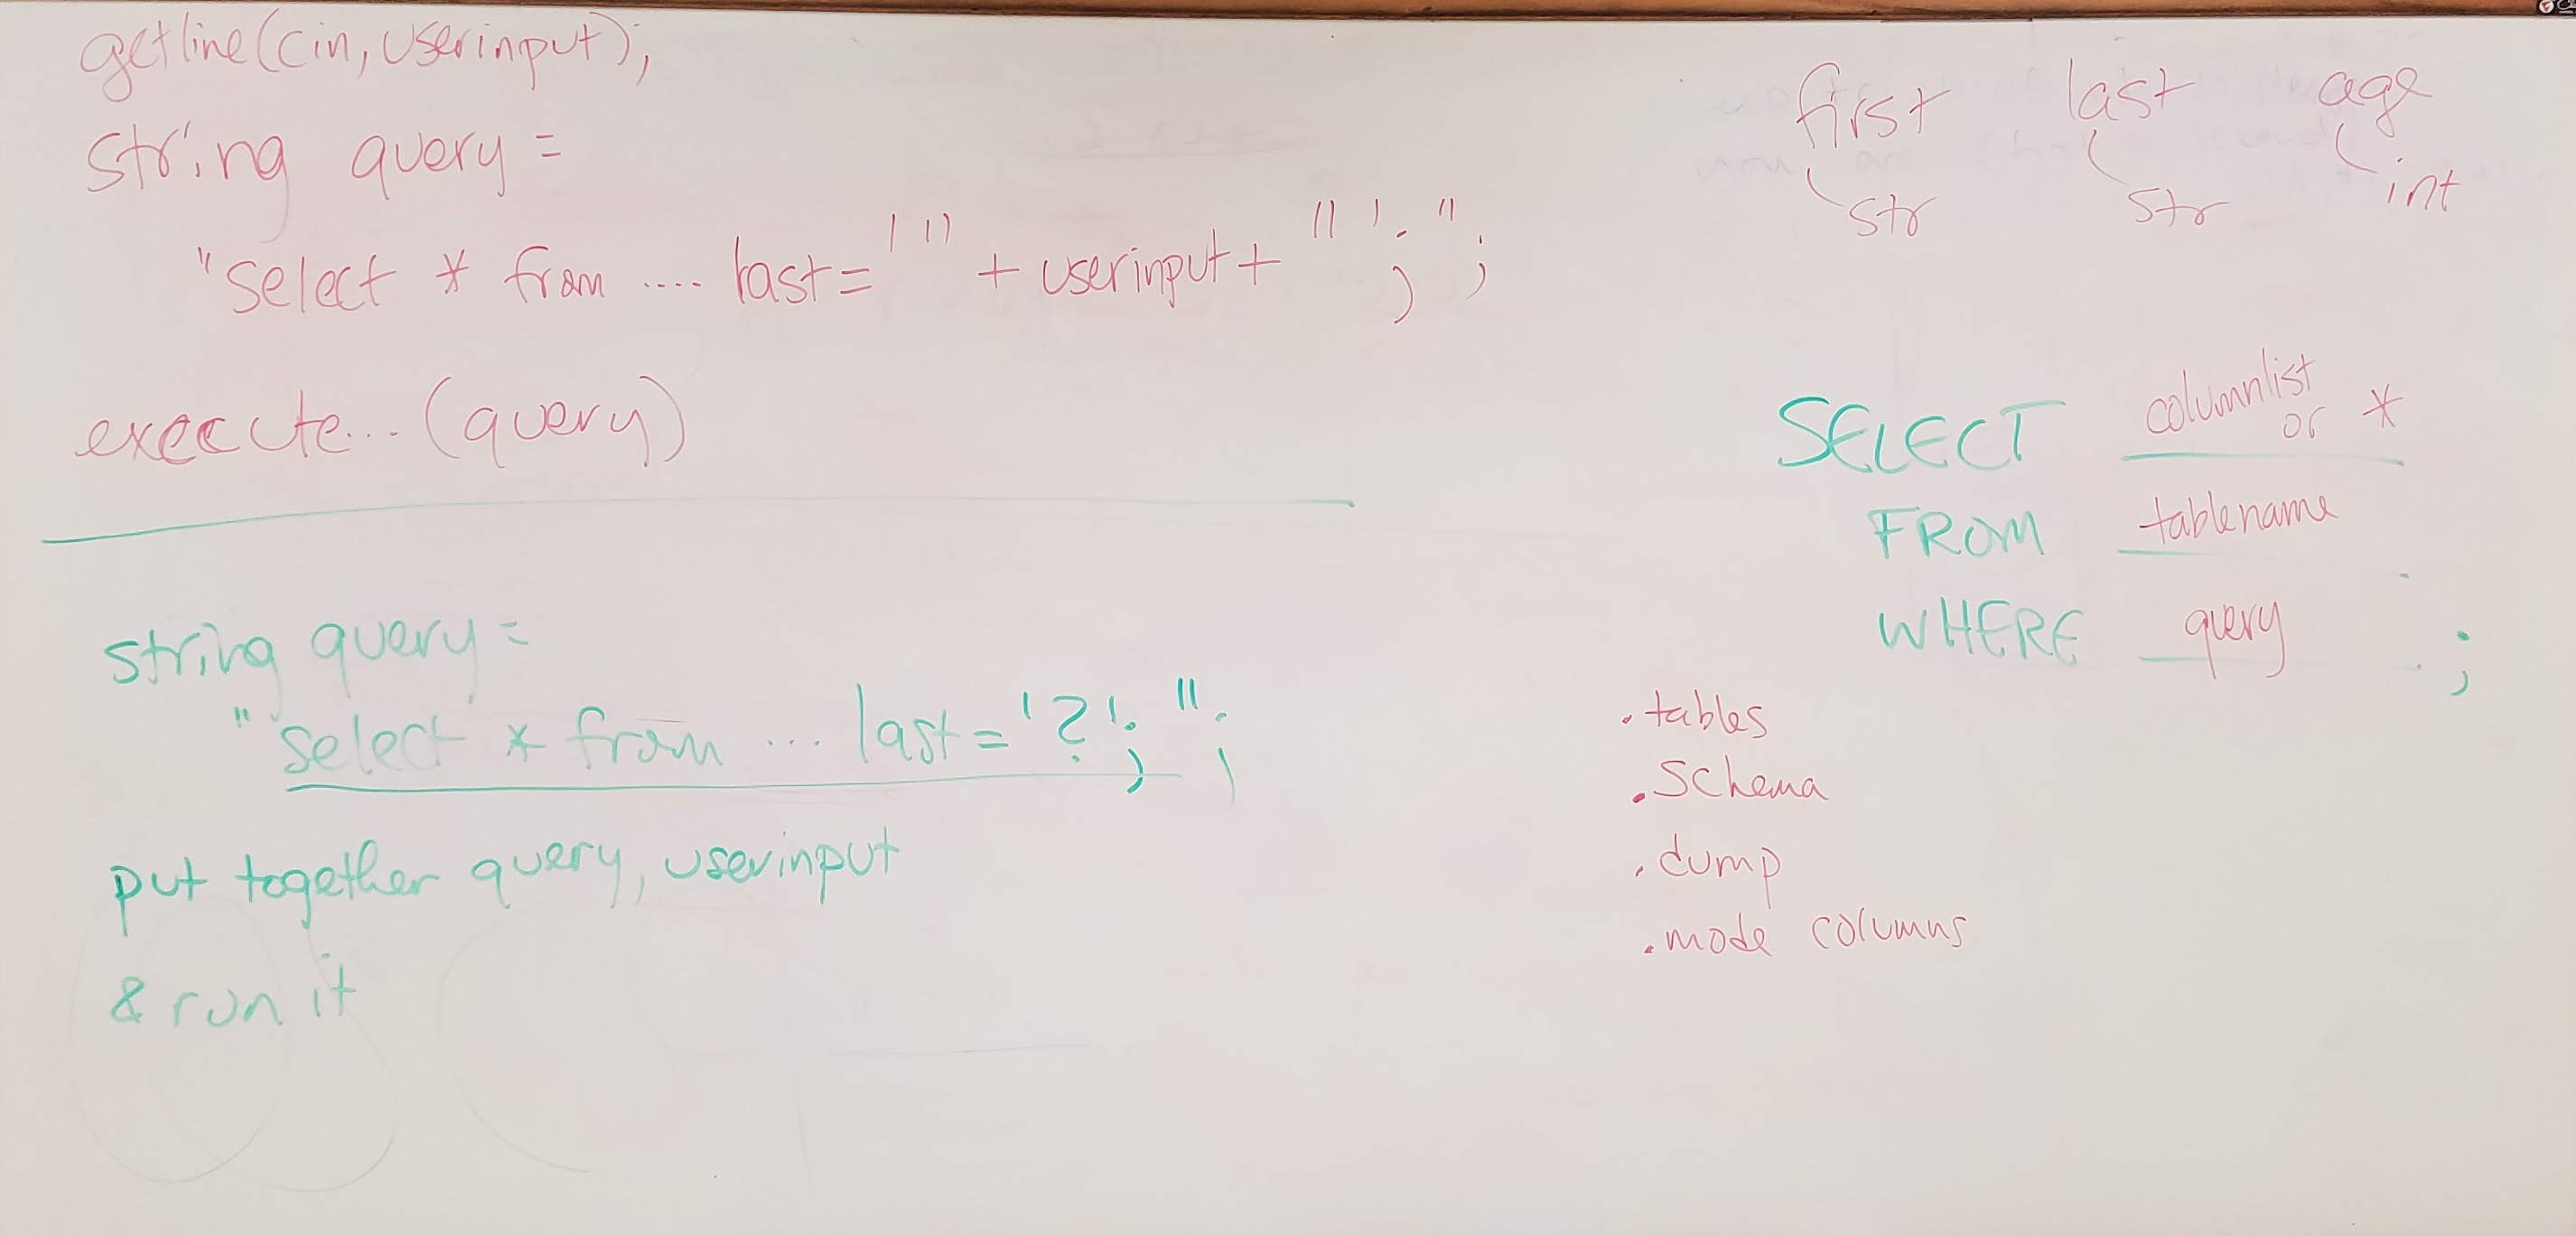 getline(cin, userinput);
string query =
"select * from .... last='" + userinput + "';";
execute... (query)
string query =
"select * from ... last='?';";
put together query, userinput
& run it
first last age
str str int
SELECT columnlist or *
FROM tablename
WHERE query ;
.tables
.schema
.dump
.mode columns